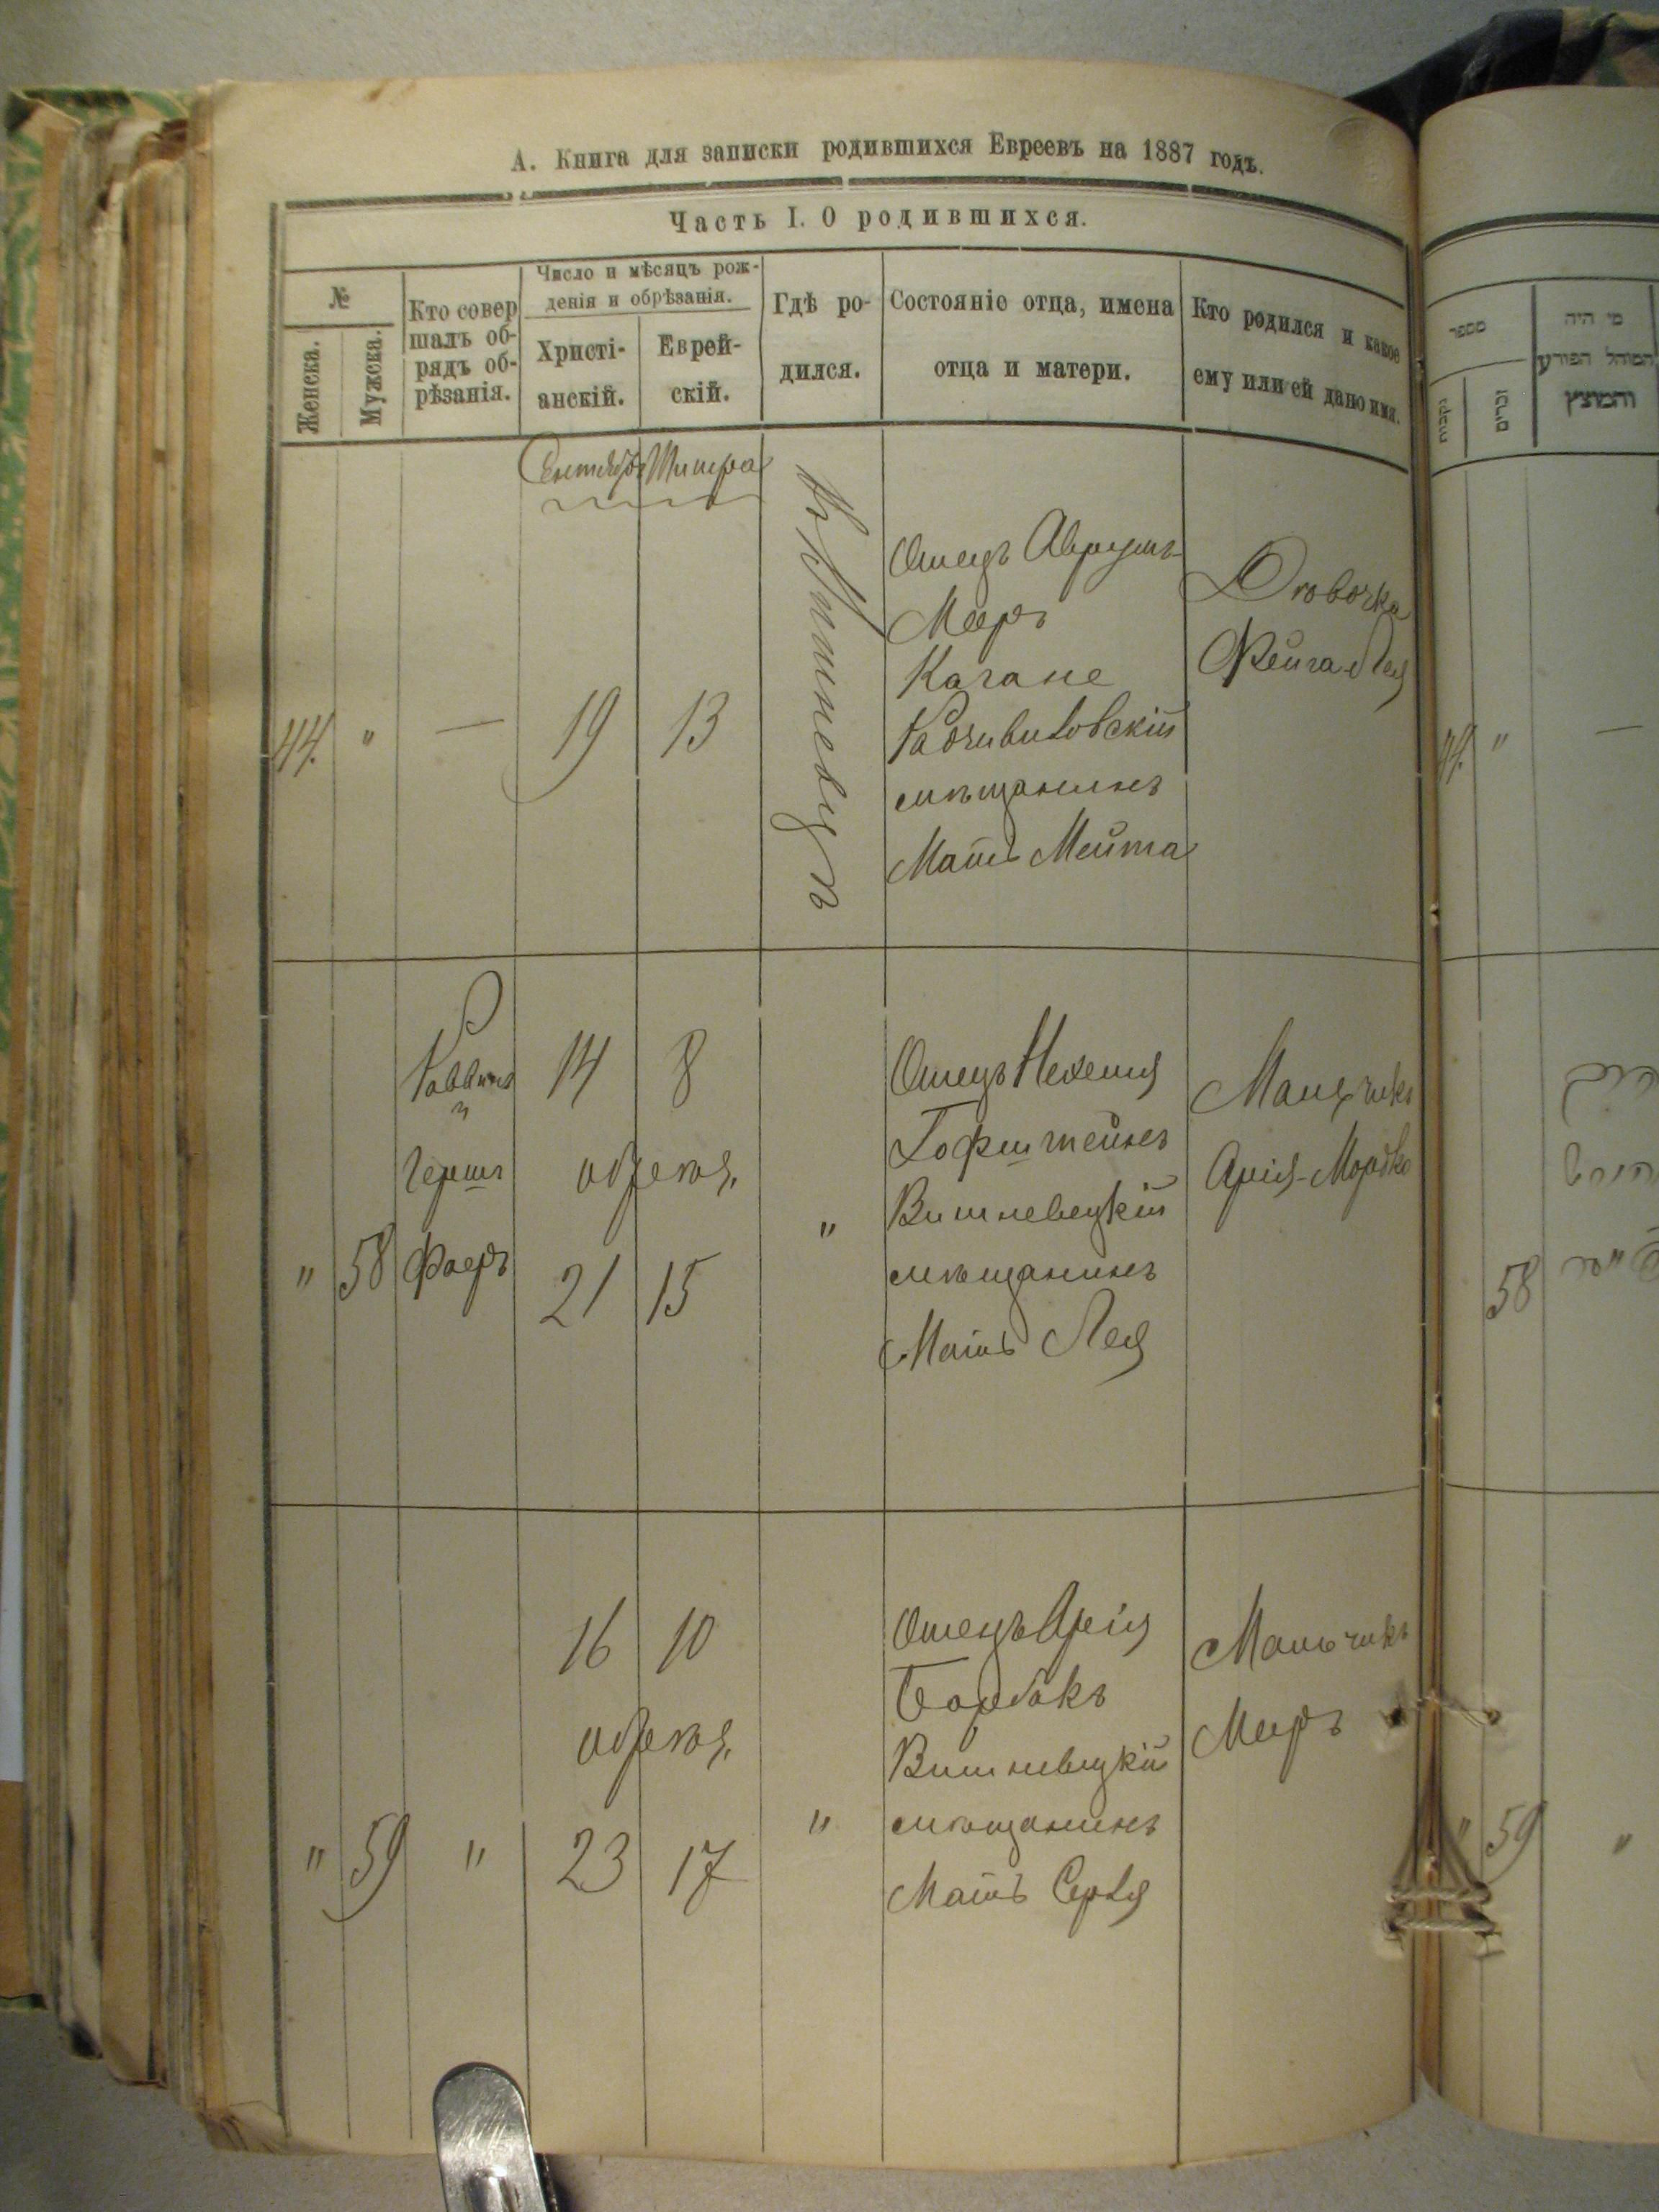 А. Книга для записки родившихся Евреевъ на 1887 годъ.
Часть I. О родившихся.
№
Женска.
Мужска.
Кто совер
шалъ об-
рядъ об-
рѣзанія.
Число и мѣсяцъ рож-
денія и обрѣзанія.
Христі-
анскій.
Еврей-
скій.
Гдѣ ро-
дился.
Состояніе отца, имена
отца и матери.
Кто родился и какое
ему или ей дано имя.
Сентябрь Тишра
44. " — 19 13
въ Вишневцѣ
Отецъ Аврумъ-
Мееръ
Кагане
Радзивиловскій
мѣщанинъ
Мать Мейта
Дѣвочка
Фейга-Лея
" 58
Раввинъ
и
Гершъ
Фаеръ
14 8
обрезан.
21 15
"
Отецъ Нехемия
Гофштейнъ
Вишневецкій
мѣщанинъ
Мать Лея
Мальчикъ
Арія-Мордко
" 59 "
16 10
обрезан.
23 17
"
Отецъ Арія
Барбакъ
Вишневецкій
мѣщанинъ
Мать
Мальчикъ
Мееръ
מספר
נקבות
זכרים
מי היה
המוהל הפורע
והמוצץ
44. " —
58
" 59 "